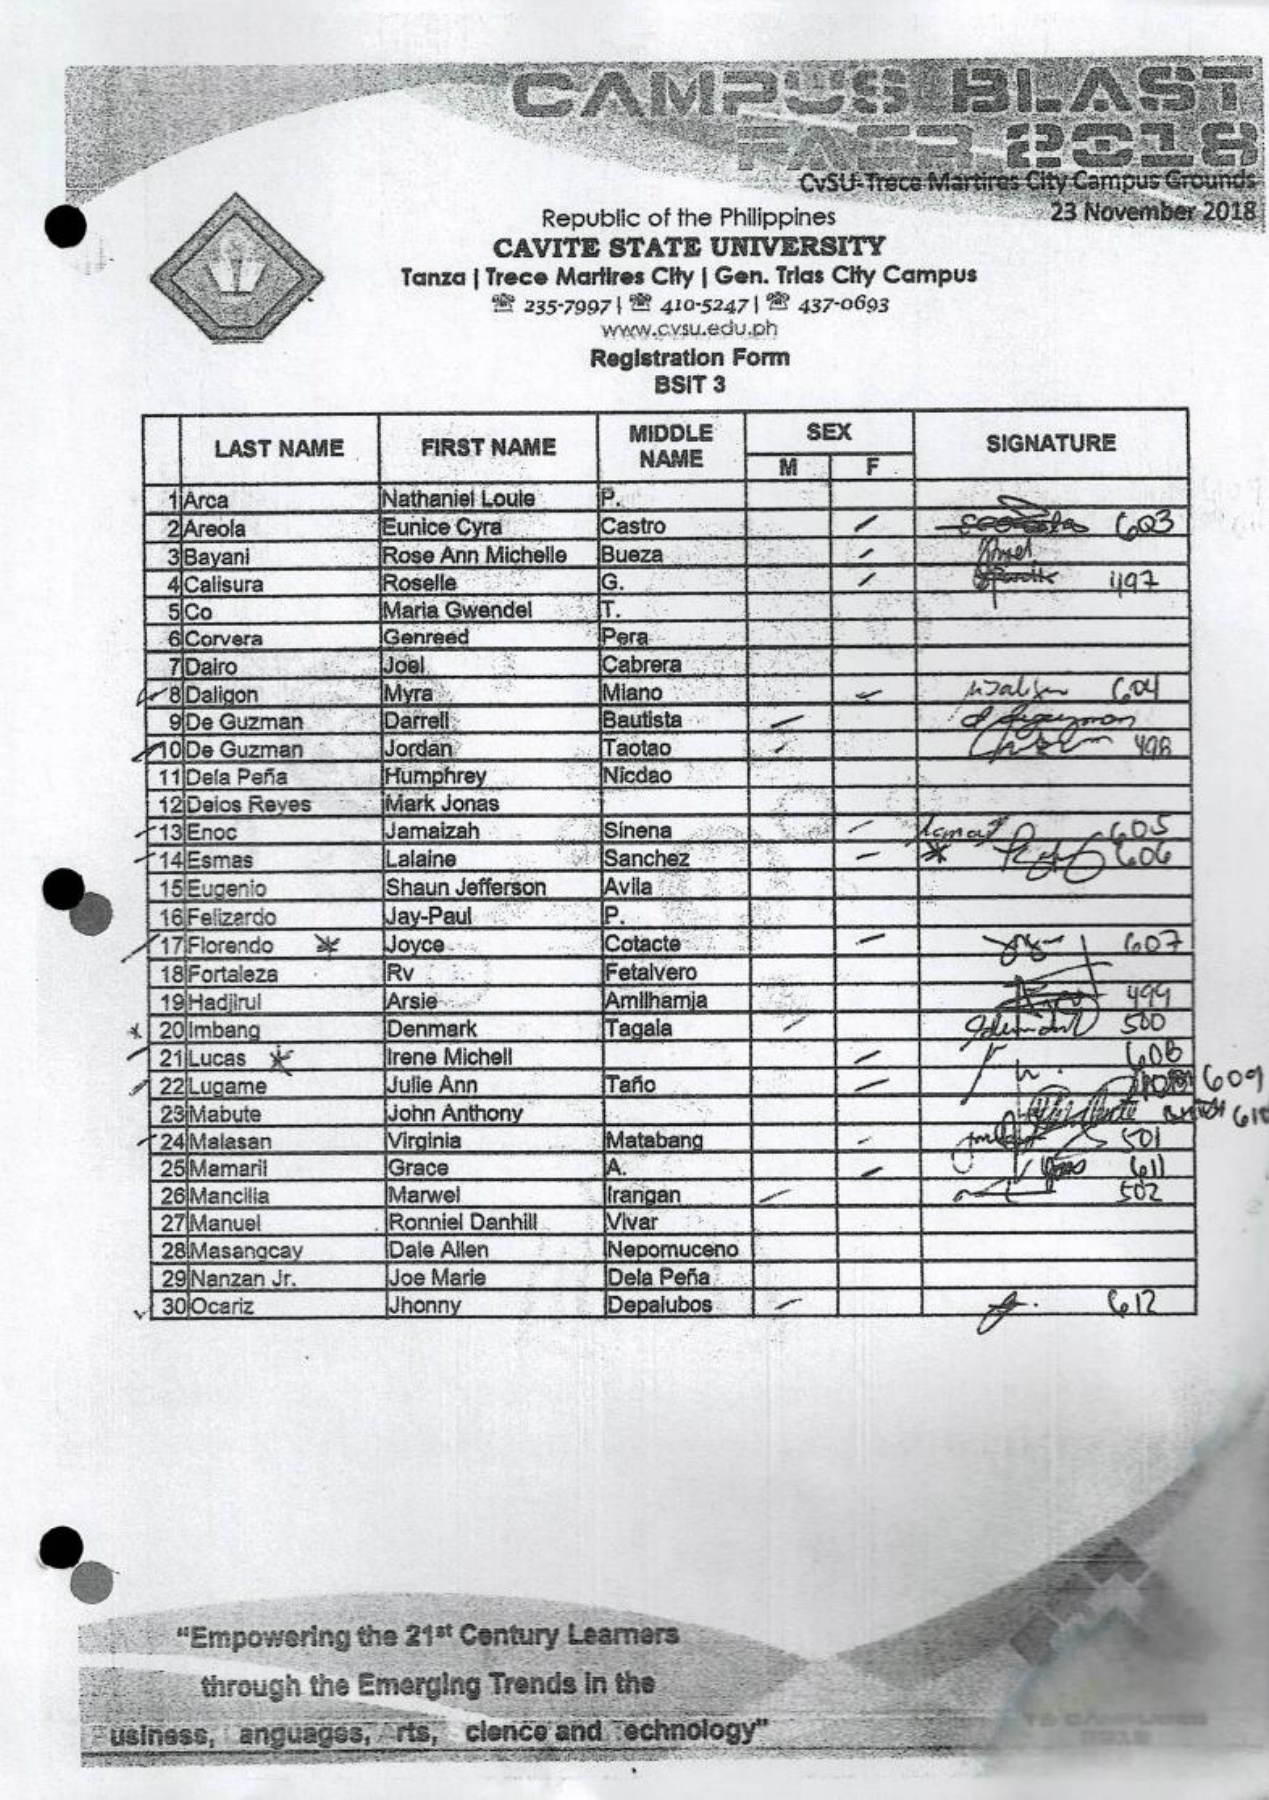 CAMPUS BLAST
FAER 2018
CvSU-Trece Martires City Campus Grounds
23 November 2018
Republic of the Philippines
CAVITE STATE UNIVERSITY
Tanza | Trece Martires City | Gen. Trias City Campus
☏ 235-7997 | ☏ 410-5247 | ☏ 437-0693
www.cvsu.edu.ph
Registration Form
BSIT 3
LAST NAME FIRST NAME MIDDLE NAME SEX SIGNATURE
M F
1 Arca Nathaniel Louie P.
2 Areola Eunice Cyra Castro 603
3 Bayani Rose Ann Michelle Bueza
4 Calisura Roselle G. 497
5 Co Maria Gwendel T.
6 Corvera Genreed Pera
7 Dairo Joel Cabrera
8 Daligon Myra Miano 604
9 De Guzman Darrell Bautista
10 De Guzman Jordan Taotao 498
11 Dela Peña Humphrey Nicdao
12 Delos Reyes Mark Jonas
13 Enoc Jamaizah Sinena 605
14 Esmas Lalaine Sanchez 606
15 Eugenio Shaun Jefferson Avila
16 Felizardo Jay-Paul P.
17 Florendo Joyce Cotacte 607
18 Fortaleza Rv Fetalvero
19 Hadjirul Arsie Amilhamja 499
20 Imbang Denmark Tagala 500
21 Lucas Irene Michell 608
22 Lugame Julie Ann Taño 609
23 Mabute John Anthony 610
24 Malasan Virginia Matabang 501
25 Mamaril Grace A. 611
26 Mancilla Marwel Irangan 502
27 Manuel Ronniel Danhill Vivar
28 Masangcay Dale Allen Nepomuceno
29 Nanzan Jr. Joe Marie Dela Peña
30 Ocariz Jhonny Depalubos 612
"Empowering the 21st Century Learners
through the Emerging Trends in the
usiness, anguages, rts, cience and echnology"